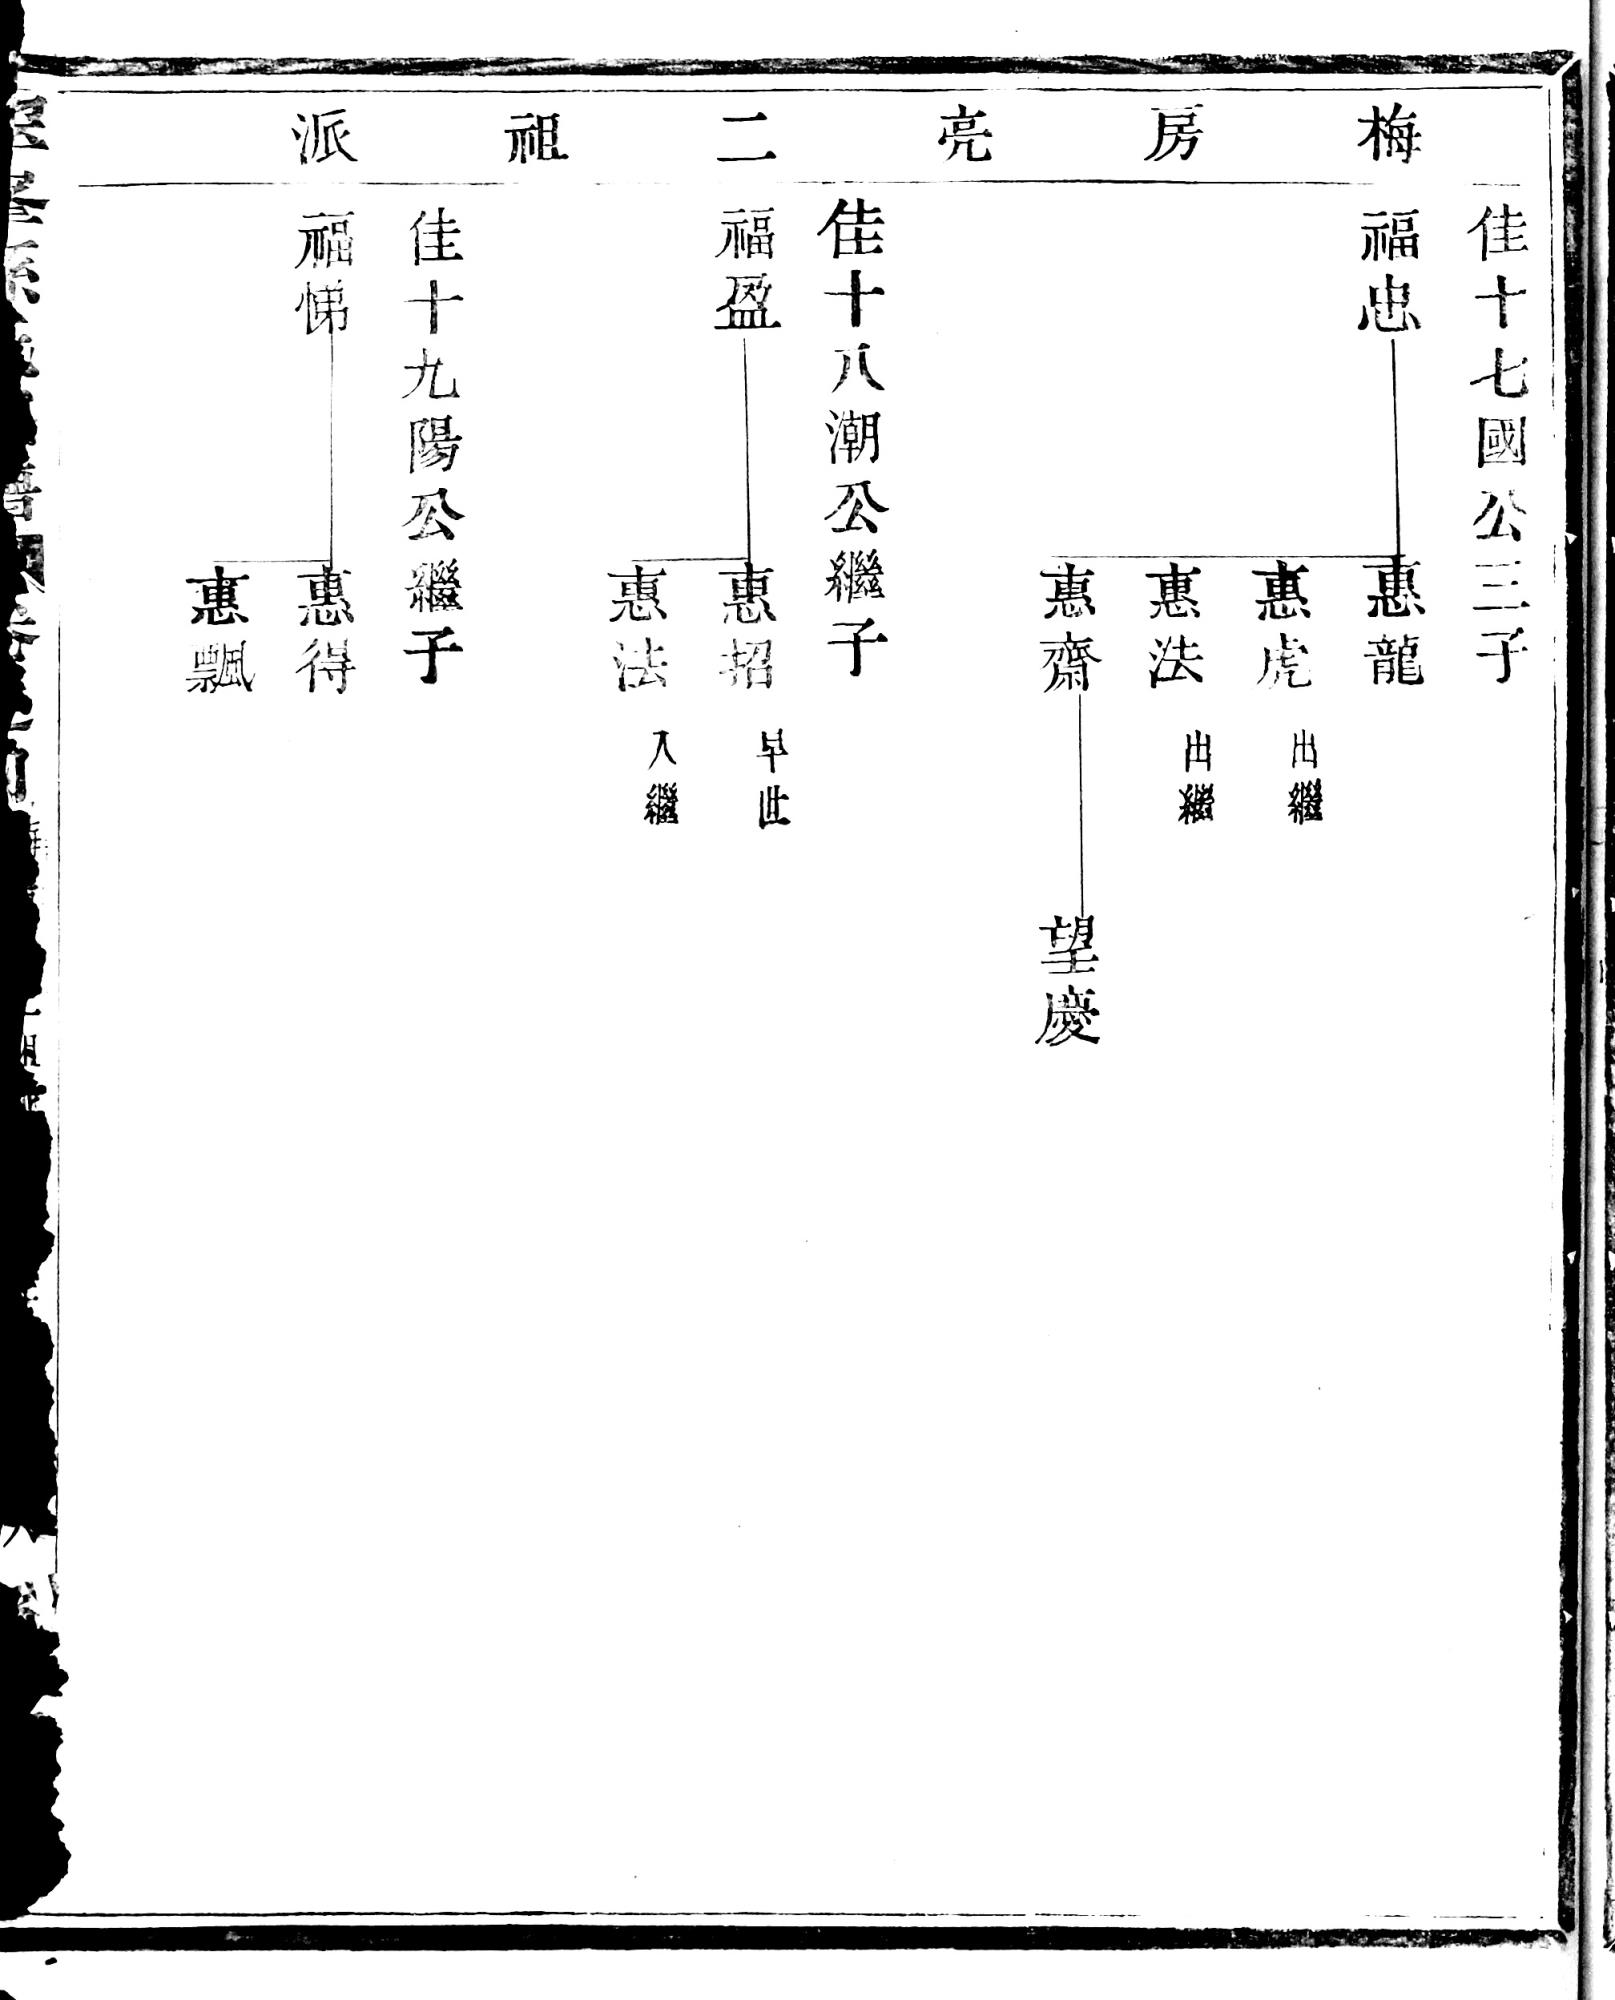 梅房亮二祖派
佳十七國公三子
福忠
惠龍
惠虎
出繼
惠法
出繼
惠齋
望慶
佳十八潮公繼子
福盈
惠招
早世
惠法
入繼
佳十九陽公繼子
福悌
惠得
惠飄